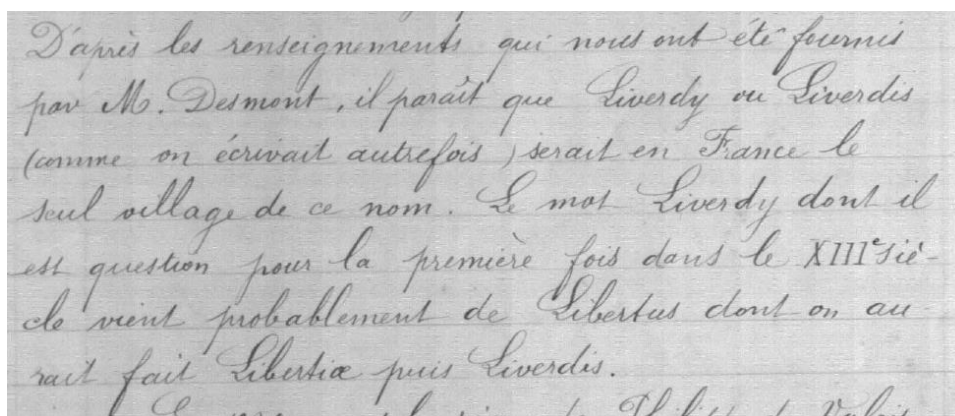 D'après les renseignements qui nous ont été fournis
par M. Desmont, il paraît que Liverdy ou Liverdis
(comme on écrivait autrefois) serait en France le
seul village de ce nom. Le mot Liverdy dont il
est question pour la première fois dans le XIIIe siè-
cle vient probablement de Libertus dont on au-
rait fait Libertiæ puis Liverdis.